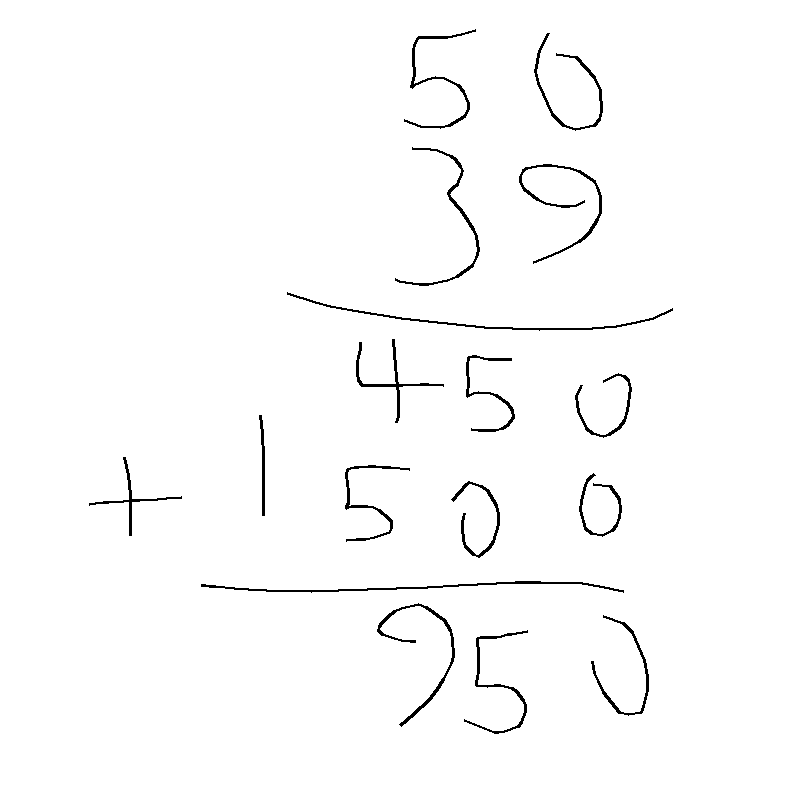 50
39
450
+ 1500
950